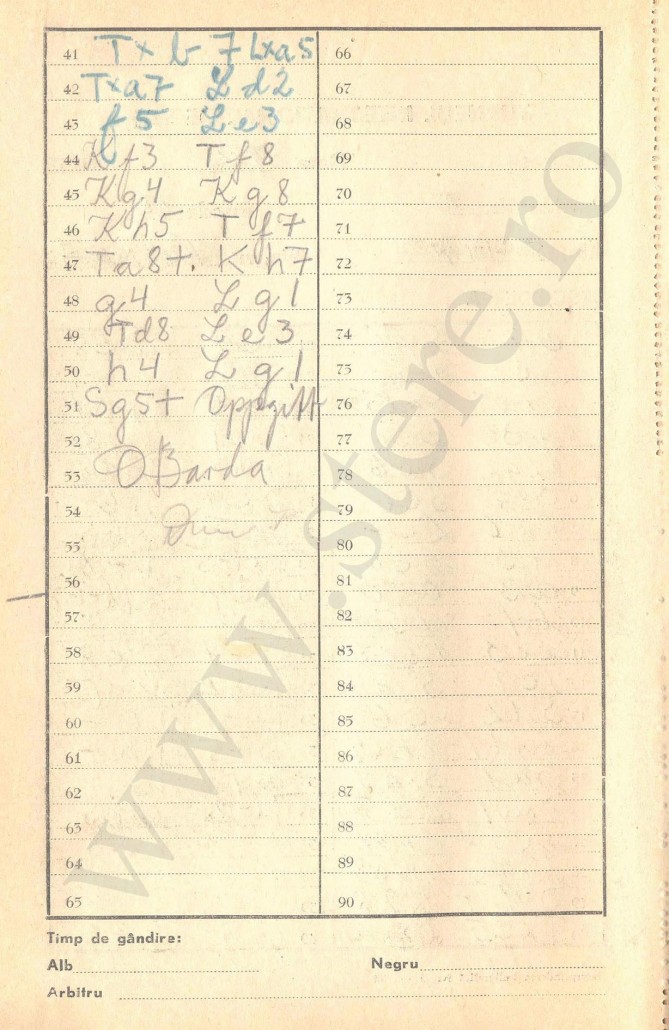 41 Txb7 Lxa5
42 Txa7 Ld2
43 f5 Le3
44 Kf3 Tf8
45 Kg4 Kg8
46 Kh5 Tf7
47 Ta8+. Kh7
48 g4 Lg1
49 Td8 Le3
50 h4 Lg1
51 Sg5+ Oppgitt
52
53 OBarda
54
55
56
57
58
59
60
61
62
63
64
65
66
67
68
69
70
71
72
73
74
75
76
77
78
79
80
81
82
83
84
85
86
87
88
89
90
www.stere.ro
Timp de gândire:
Alb Negru
Arbitru